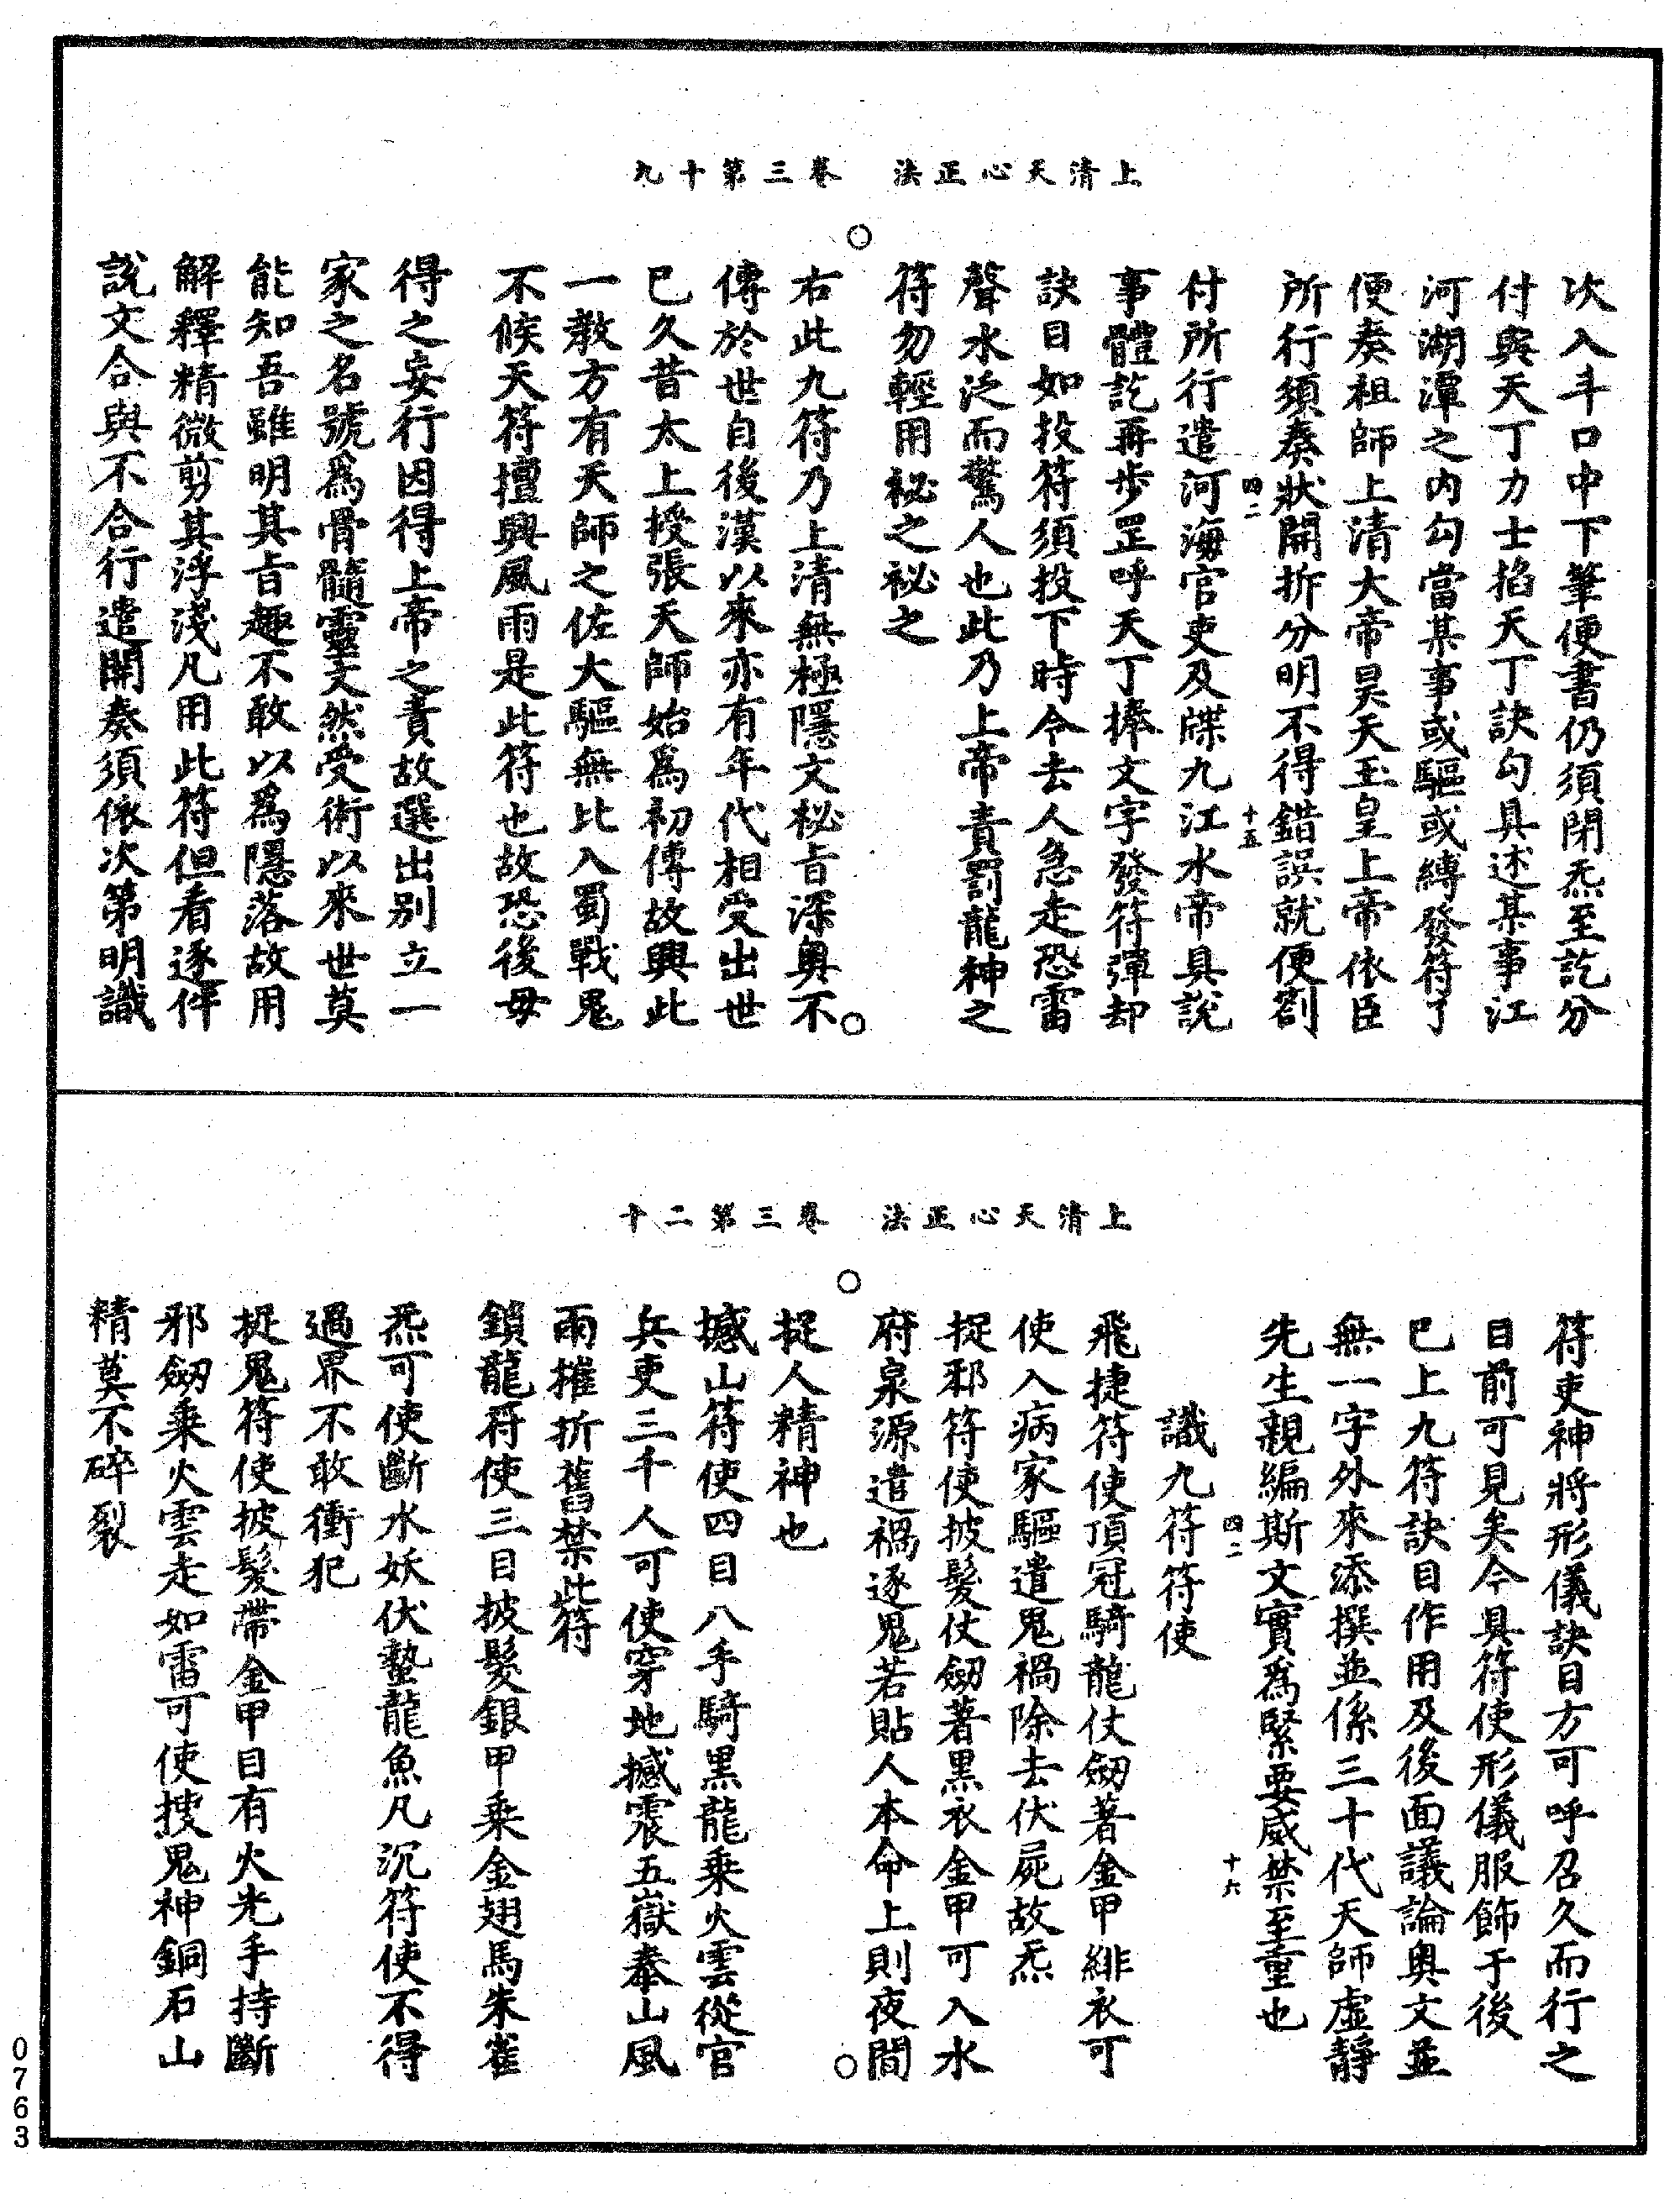 上清天心正法　卷三第十九
次入斗口中下筆便書仍須閉炁至訖分
付與天丁力士掐天丁訣勾具述某事江
河湖潭之內勾當某事或驅或縛發符了
便奏祖師上清大帝昊天玉皇上帝依臣
所行須奏狀開折分明不得錯誤就便劄
四二　十五
付所行遣河海官吏及牒九江水帝具說
事體訖再步罡呼天丁捧文字發符彈却
訣目如投符須投下時令去人急走恐雷
聲水泛而驚人也此乃上帝責罰龍神之
符勿輕用祕之祕之
右此九符乃上清無極隱文秘旨深奧不
傳於世自後漢以來亦有年代相受出世
巳久昔太上授張天師始爲初傳故興此
一教方有天師之佐大驅無比入蜀戰鬼
不候天符擅興風雨是此符也故恐後毋
得之妄行因得上帝之責故選出別立一
家之名號爲骨髓靈文然受術以來世莫
能知吾雖明其旨趣不敢以爲隱落故用
解釋精微剪其浮淺凡用此符但看逐件
說文合與不合行遣開奏須依次第明識
上清天心正法　卷三第二十
符吏神將形儀訣目方可呼召久而行之
目前可見矣今具符使形儀服飾于後
巳上九符訣目作用及後面議論奧文並
無一字外來添撰並係三十代天師虛靜
先生親編斯文實爲緊要威禁至重也
四二　十六
識九符符使
飛捷符使頂冠騎龍仗劒著金甲緋衣可
使入病家驅遣鬼禍除去伏屍故炁
捉邪符使披髮仗劒著黑衣金甲可入水
府泉源遣禍逐鬼若貼人本命上則夜間
捉人精神也
撼山符使四目八手騎黑龍乘火雲從官
兵吏三千人可使穿地撼震五嶽奉山風
雨摧折舊禁此符
鎖龍符使三目披髮銀甲乘金翅馬朱雀
炁可使斷水妖伏蟄龍魚凡沉符使不得
過界不敢衝犯
捉鬼符使披髮帶金甲目有火光手持斷
邪劒乘火雲走如雷可使搜鬼神銅石山
精莫不碎裂
0763